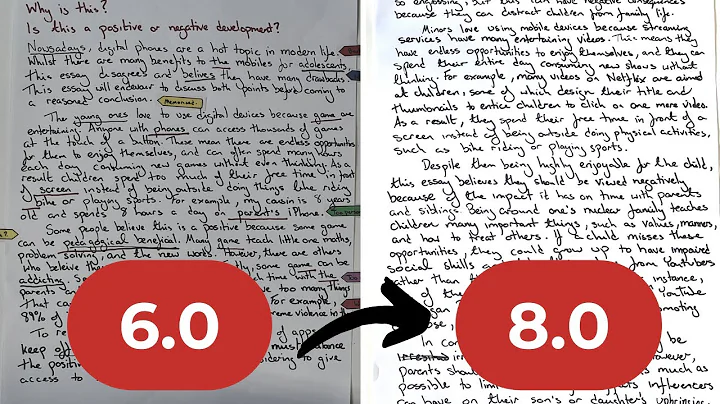 Why is this?
Is this a positive or negative development?
Nowsadays, digital phones are a hot topic in modern life.
Whilst there are many benefits to the mobiles for adolescents,
this essay disagrees and belives they have many drawbacks.
This essay will endeavor to discuss both points before coming to
a reasoned conclusion.
Memorised.
The young ones love to use digital devices because game are
entertaining. Anyone with phones can access thousands of games
at the touch of a button. These mean there are endless opportunities
for them to enjoy themselves, and can often spend many hours
each day consuming new games without even thinking. As a
result children spend too much of their free time in front
of screen instead of being outside doing things like riding
bike or playing sports. For example, my cousin is 8 years
old and spends 8 hours a day on parent's iPhone.
Some people believe this is a positive because some game
can be pedagogical benefical. Many game teach little one moths,
problem solving, and the new words. However, there are others
who believe
some game can be
addicting.
time with the
parents
too many things
That ca
for example,
89% of
violence
To re
of apps
keep
balance
the positi
to give
access to
so engrossing, but this can have negative consequences
because they can distract children from family life.
Minors love using mobile devices because streaming
services have many entertaining videos. This means they
have endless opportunities to enjoy themselves, and they can
spend their entire day consuming new shows without
thinking. For example, many videos on Netflix are aimed
at children, some of which design their title and
thumbnails to entice children to click on one more video.
As a result, they spend their free time in front of a
screen instead of being outside doing physical activities,
such as bike riding or playing sports.
Despite them being highly enjoyable for the child,
this essay believes they should be viewed negatively
because of the impact it has on time with parents
and siblings. Being around one's nuclear family teaches
children many important things, such as values, manners,
and how to treat others. If a child misses these
opportunities, they could grow up to have impaired
social skills
from Youtubers
rather than
instance,
of the
YouTube
can
promoting
In con
be
however,
parents shou
is much as
possible to lim
influencers
can have on their son's or daughter's upbringing.
6.0
8.0